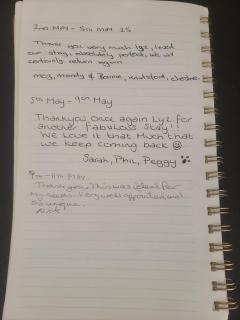 2nd MAY - 5th MAY 25
Thank you very much Lyz, loved
our stay, absolutely perfect, we will
certainly return again
Meg, Mandy & Bonnie, Knutsford, Cheshire.
5th May - 9th May
Thankyou once again Lyz for
another Fabulous Stay!!
We love it that Much that
we keep coming back ☺
Sarah, Phil, Peggy 🐾
9th - 11th May
Thank you, This was ideal for
My needs. Very well appointed and
so unique.